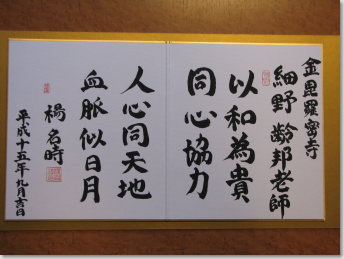 金毘羅密寺
細野 齢邦老師
以和為貴
同心協力
人心同天地
血脈似日月
楊名時
平成十五年九月吉日